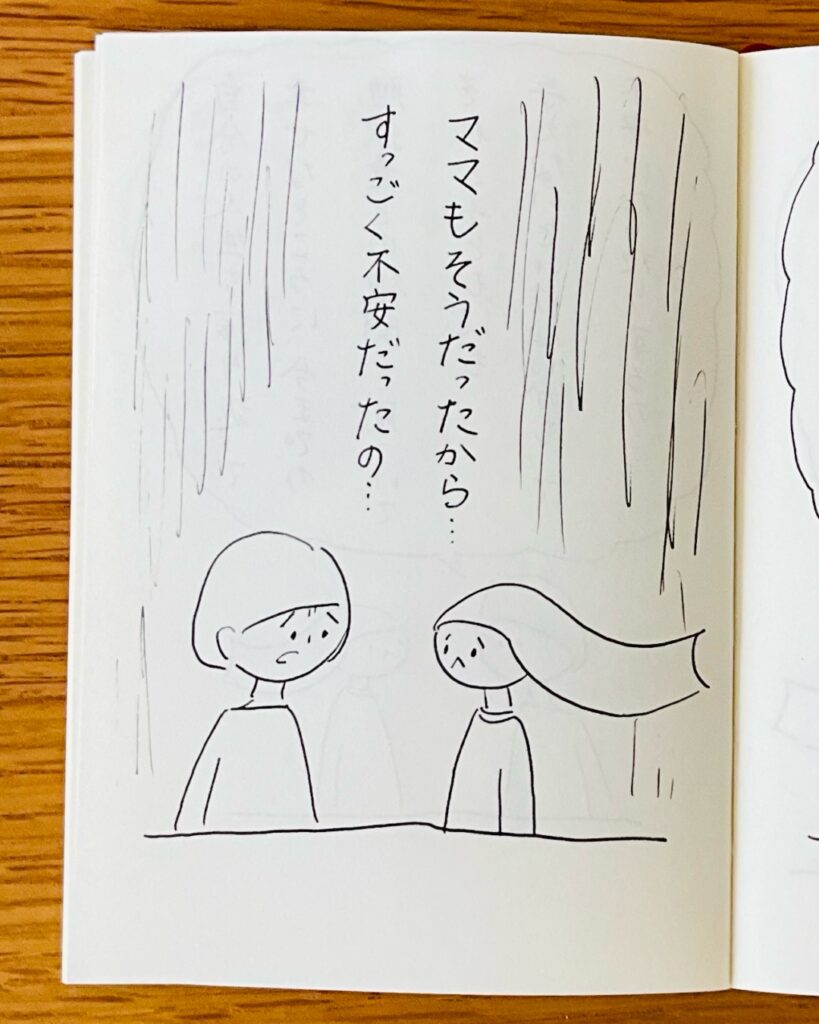 ママもそうだったから…
すっごく不安だったの…